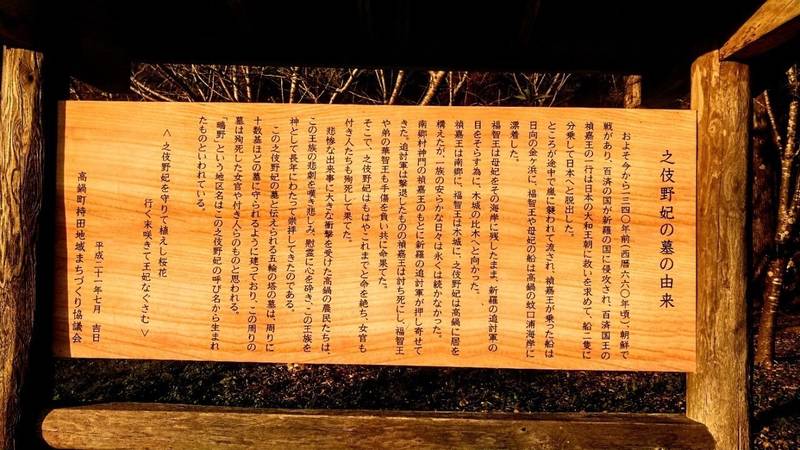 之伎野妃の墓の由来
およそ今から一三四〇年前(西暦六六〇年頃)、朝鮮で
戦があり、百済の国が新羅の国に侵攻され、百済国王の
禎嘉王の一行は日本の大和王朝に救いを求めて、船二隻に
分乗して日本へと脱出した。
ところが途中で嵐に襲われて流され、禎嘉王が乗った船は
日向の金ヶ浜に、福智王や母妃の船は高鍋の蚊口浦海岸に
漂着した。
福智王は母妃をその海岸に残したまま、新羅の追討軍の
目をそらす為に、木城の比木へと向かった。
禎嘉王は南郷に、福智王は木城に、之伎野妃は高鍋に居を
構えたが、一族の安らかな日々は永くは続かなかった。
南郷村神門の禎嘉王のもとに新羅の追討軍が押し寄せて
きた。追討軍は撃退したものの禎嘉王は討ち死にし、福智王
や弟の華智王も手傷を負い共に命果てた。
そこで、之伎野妃はもはやこれまでと命を絶ち、女官も
付き人たちも殉死して果てた。
悲惨な出来事に大きな衝撃を受けた高鍋の農民たちは、
この王族の悲劇を嘆き悲しみ、慰霊に心を砕き、この王族を
神として長年にわたって餅拝してきたのである。
この之伎野妃の墓と伝えられる五輪の塔の墓は、周りに
十数基ほどの墓に守られるように建っており、この周りの
墓は殉死した女官や付き人らのものと思われる。
「鴫野」という地区名はこの之伎野妃の呼び名から生まれ
たものといわれている。
<之伎野妃を守りて植えし桜花
行く末咲きて王妃なぐさむ>
平成二十一年七月 吉日
高鍋町持田地域まちづくり協議会